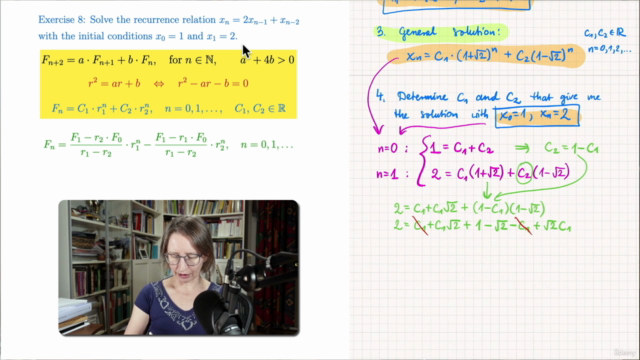 Exercise 8: Solve the recurrence relation xₙ = 2xₙ₋₁ + xₙ₋₂
with the initial conditions x₀ = 1 and x₁ = 2.
Fₙ₊₂ = a · Fₙ₊₁ + b · Fₙ, for n ∈ ℕ, a² + 4b > 0
r² = ar + b ⇔ r² − ar − b = 0
Fₙ = C₁ · r₁ⁿ + C₂ · r₂ⁿ, n = 0, 1, . . . , C₁, C₂ ∈ ℝ
Fₙ = (F₁ − r₂ · F₀)/(r₁ − r₂) · r₁ⁿ − (F₁ − r₁ · F₀)/(r₁ − r₂) · r₂ⁿ, n = 0, 1, . . .
3. General solution:
C₁, C₂ ∈ ℝ
n=0,1,2,...
xₙ = C₁·(1+√2)ⁿ + C₂(1-√2)ⁿ
4. Determine C₁ and C₂ that give me
the solution with x₀=1, xₙ=2
n=0: 1 = C₁+C₂ ⇒ C₂ = 1-C₁
n=1: 2 = C₁(1+√2) + C₂(1-√2)
2 = C₁+C₁√2 + (1-C₁)(1-√2)
2 = C₁+C₁√2 + 1-√2 -C₁ + √2C₁